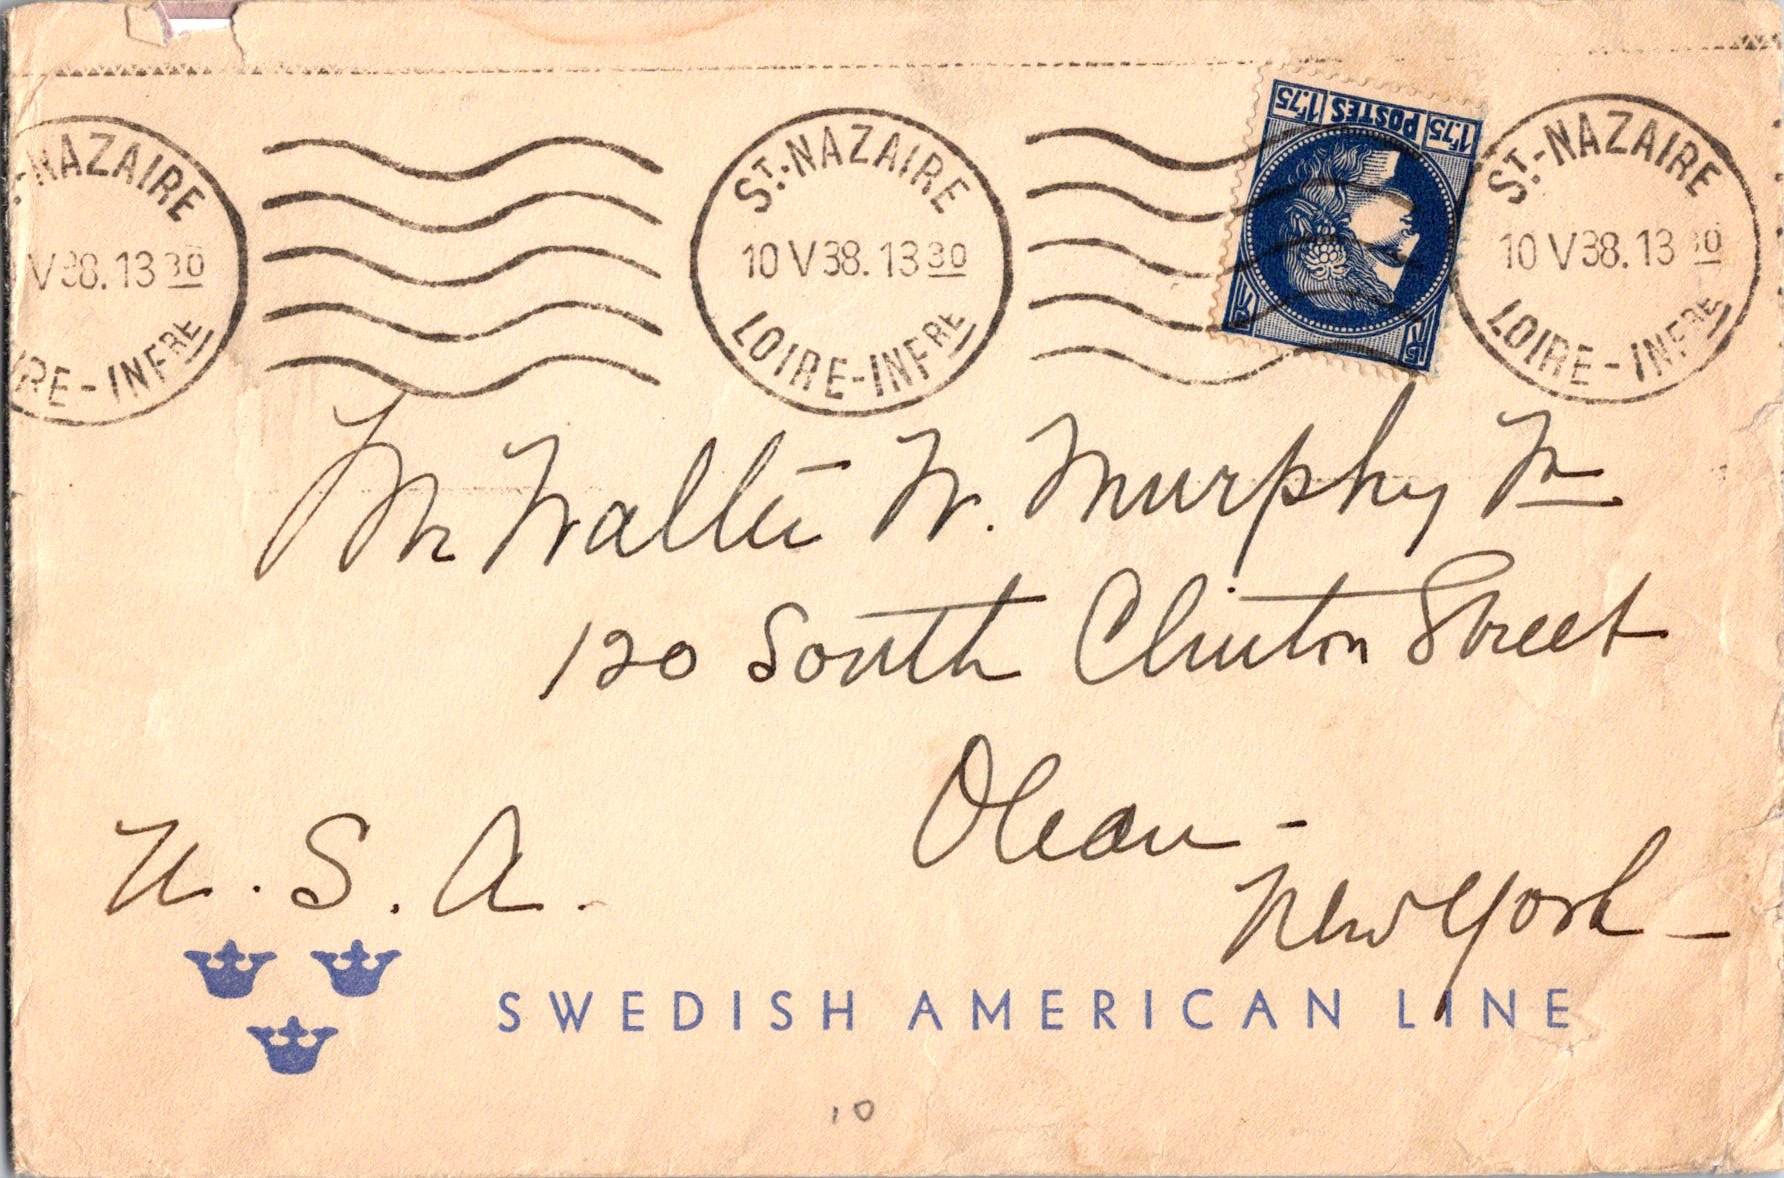 ST.-NAZAIRE
V 38. 13 30
RE-INFRE
ST.-NAZAIRE
10 V 38. 13 30
LOIRE-INFRE
1F.75 POSTES 1F.75
ST.-NAZAIRE
10 V 38. 13 30
LOIRE-INFRE
Mr Walter W. Murphy Jr
120 South Clinton Street
Olean -
New York -
U.S.A.
SWEDISH AMERICAN LINE
10